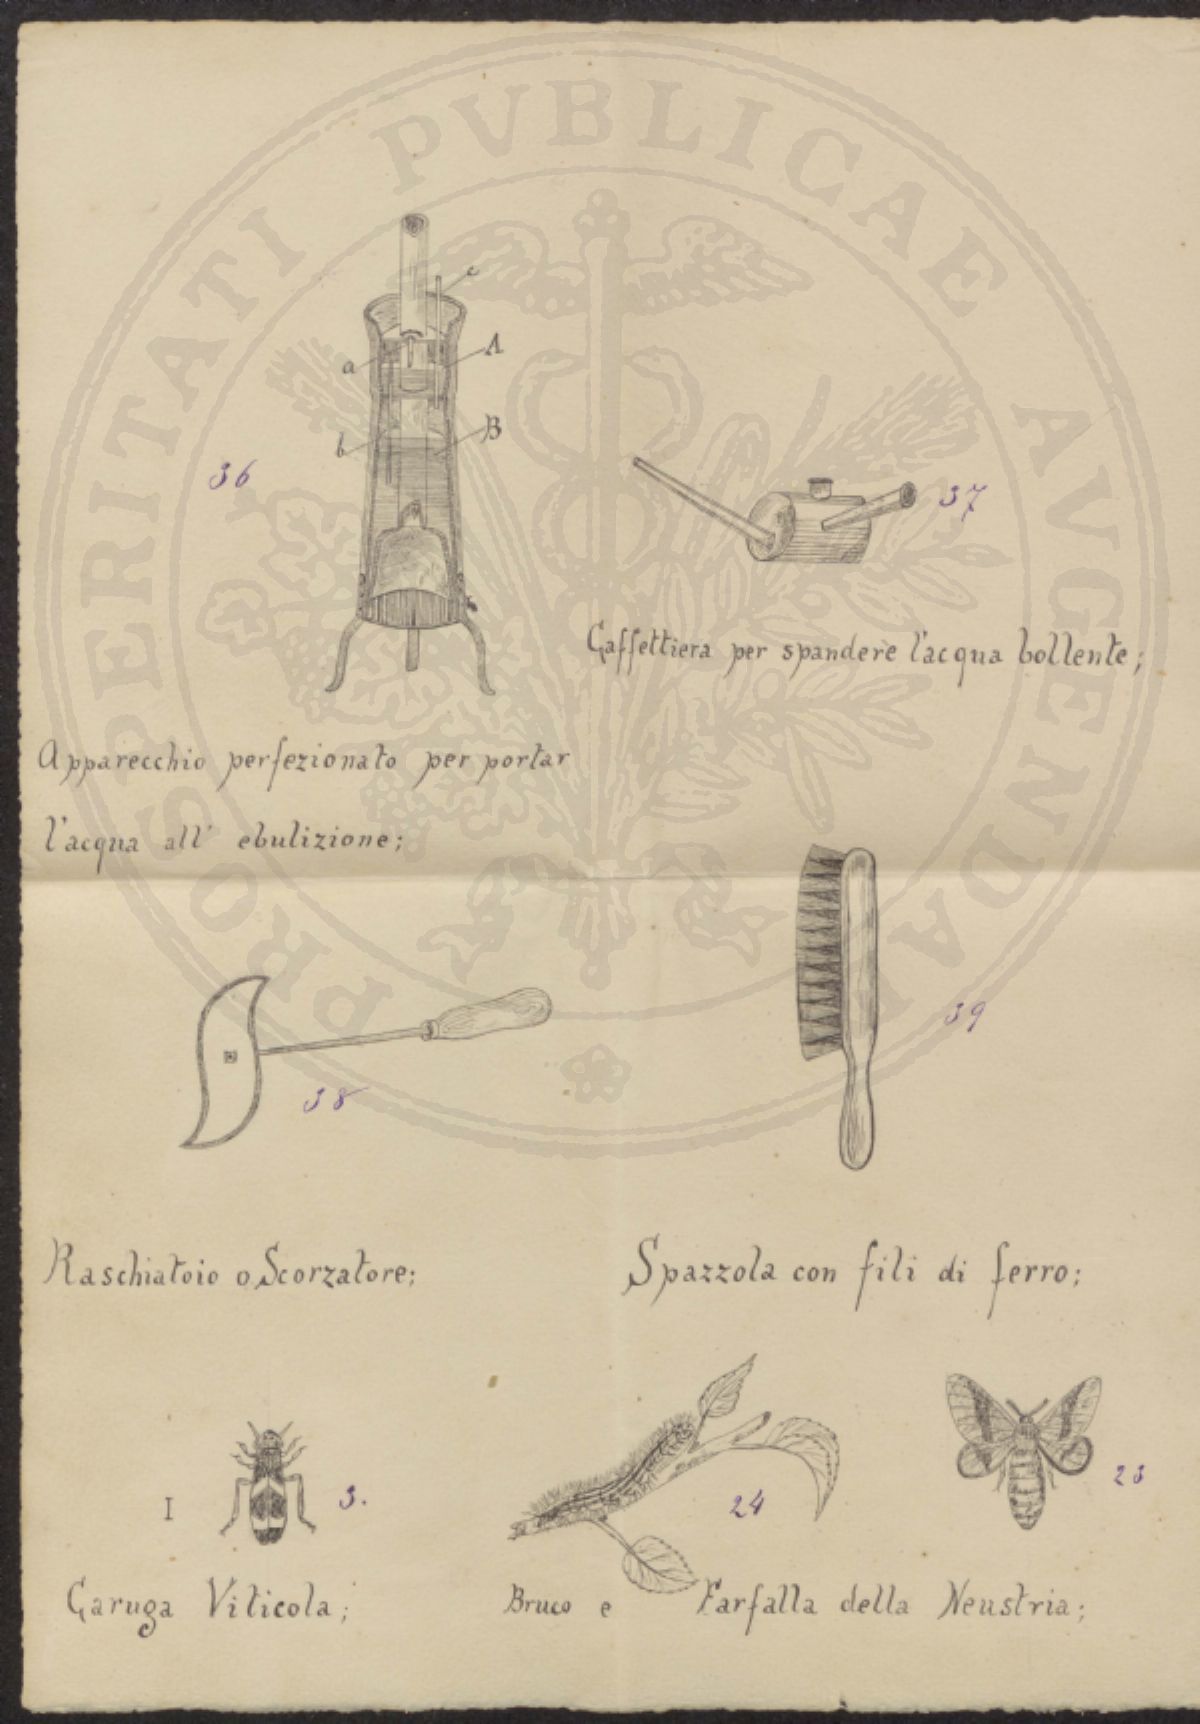 PROSPERITATI PVBLICAE AVGENDAE
c
a
A
b
B
36
37
Caffettiera per spandere l'acqua bollente;
Apparecchio perfezionato per portar
l'acqua all' ebulizione;
38
39
Raschiatoio o Scorzatore;
Spazzola con fili di ferro;
I
3.
24
23
Caruga Viticola;
Bruco e Farfalla della Neustria;